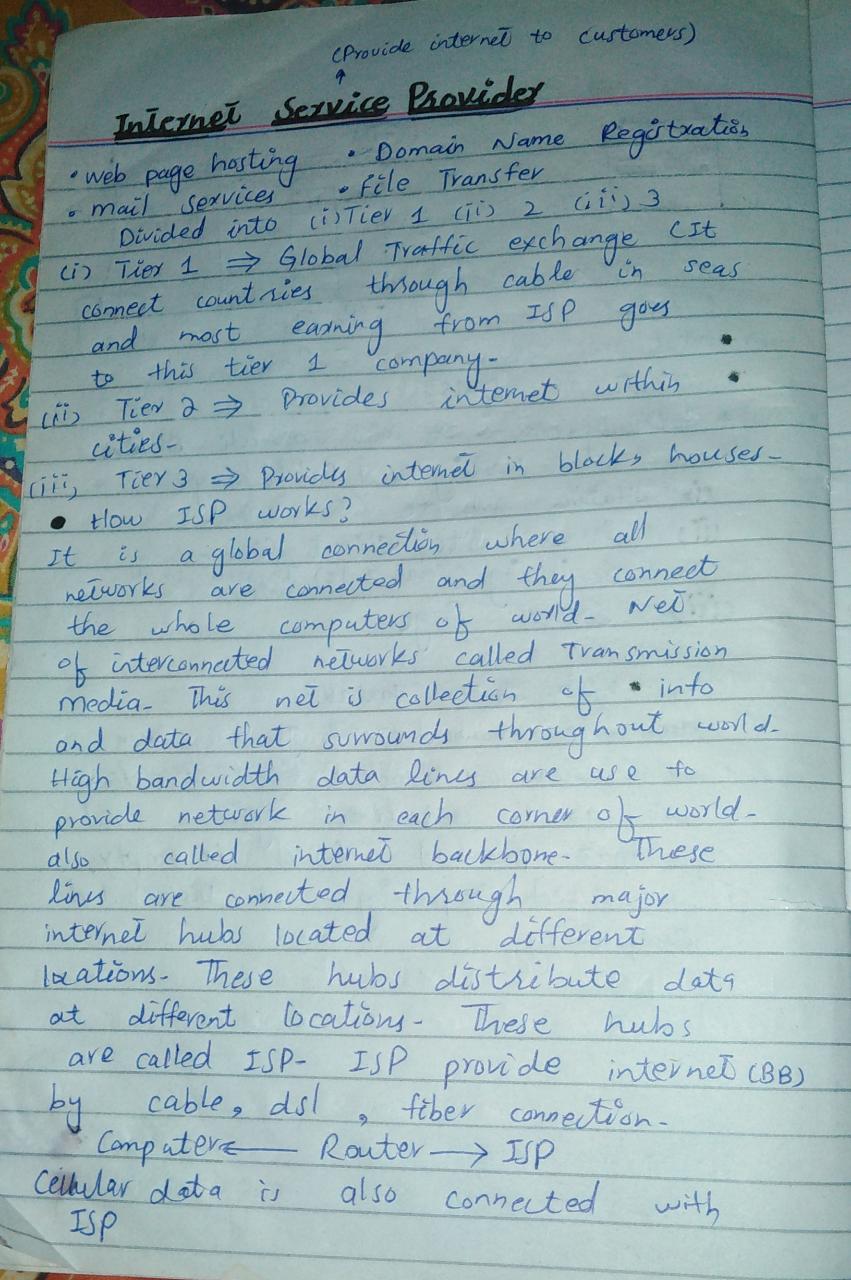 (Provide internet to customers)
↑
Internet Service Provider
• web page hosting • Domain Name Registration
• mail services • File Transfer
Divided into (i) Tier 1 (ii) 2 (iii) 3
(i) Tier 1 ⇒ Global Traffic exchange (It
connect countries through cable in seas
and most earning from ISP goes
to this tier 1 company-
(ii) Tier 2 ⇒ Provides internet within
cities-
(iii) Tier 3 ⇒ Provides internet in blocks, houses-
• How ISP works?
It is a global connection where all
networks are connected and they connect
the whole computers of world- Net
of interconnected networks called Transmission
media- This net is collection of info
and data that surrounds throughout world-
High bandwidth data lines are use to
provide network in each corner of world-
also called internet backbone- These
lines are connected through major
internet hubs located at different
locations- These hubs distribute data
at different locations- These hubs
are called ISP- ISP provide internet (BB)
by cable, dsl, fiber connection-
Computer ← Router → ISP
Cellular data is also connected with
ISP